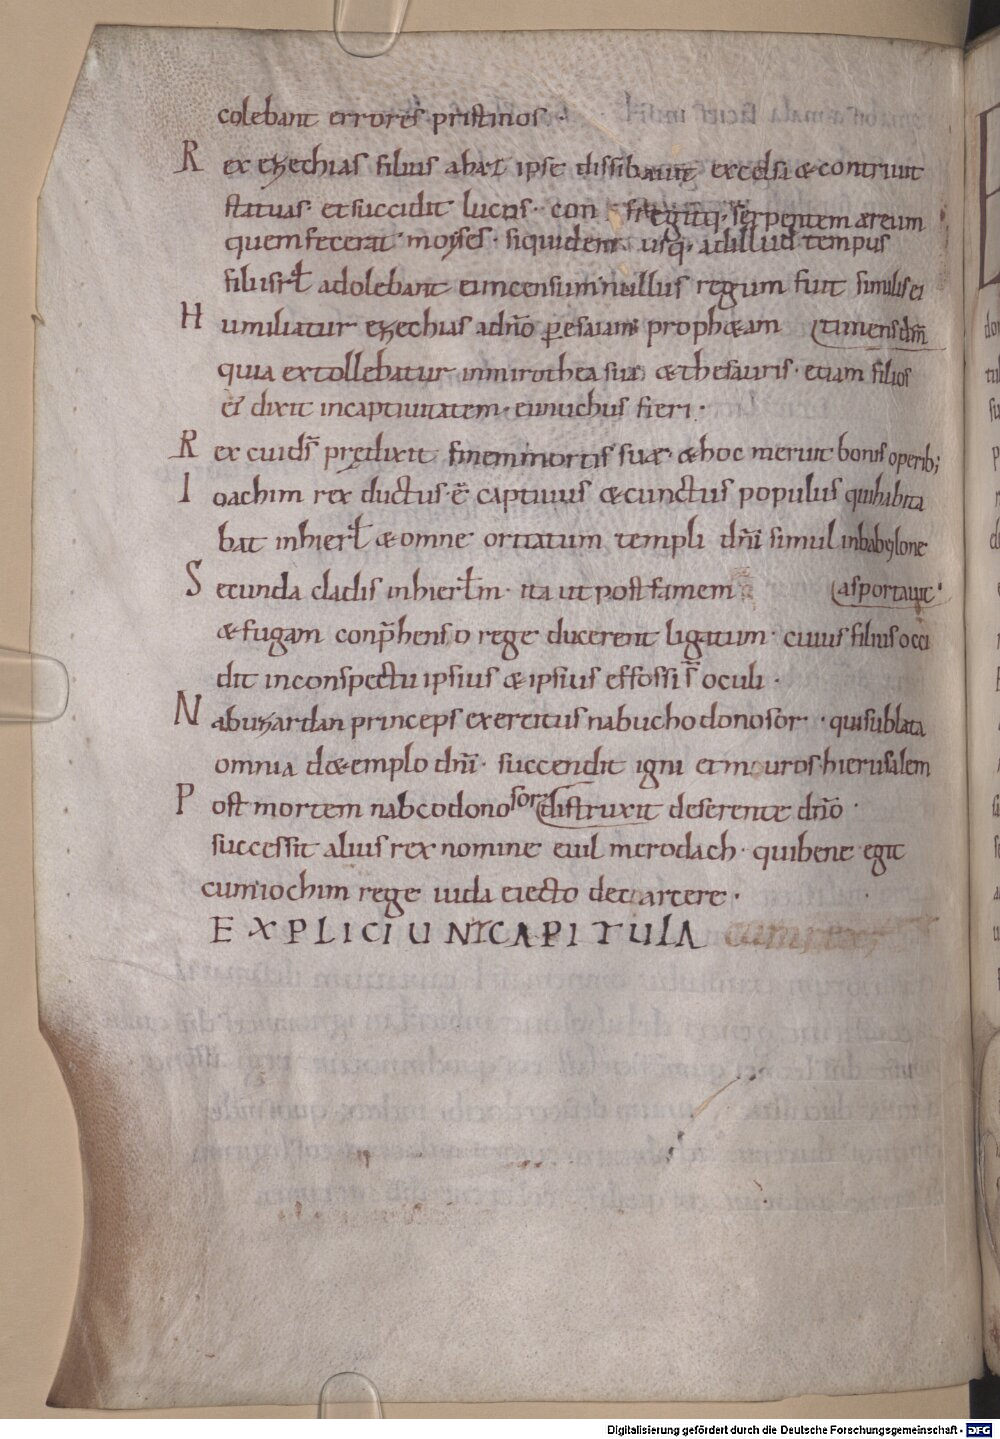 colebant errores pristinos ·
Rex ezechias filius ahaz ipse dissibauit excelsa & contriuit
statuas· et succidit lucos· con fregitq· serpentem aereum
quem fecerat moyses· siquidem usq· ad illud tempus
filii isrł adolebant ei incensum nullus regum fuit similis ei
Humiliatur ezechias ad dn̄o p̲ esaiam proph&am (timens dn̄m
quia extollebatur in mirotheca sua &thesauris· etiam filios
ei dixit in captiuitatem· eunuchus fieri·
Rex cui ds̄ prędixit finem mortis suæ &hoc meruit bonis operib;
Ioachim rex ductus ē captiuus &cunctus populus qui habita
bat in hierł &omne ornatum templi dn̄i simul in babylone
Secunda cladis in hierłm· ita ut post famem (asportauit·
&fugam conp̄henso rege ducerent ligatum· cuius filius occi
dit in conspectu ipsius &ipsius effossi s̄ oculi·
Nabuzardan princeps exercitus nabuchodonosor· · qui sublata
omnia de templo dn̄i· succendit igni et muros hierusalem
Post mortem nabcodonosor (distruxit deserente dn̄o ·
successit alius rex nomine euil merodach· qui bene egit
cum iochim rege iuda eiecto de carcere·
EXPLICIUNT CAPITULA
Digitalisierung gefördert durch die Deutsche Forschungsgemeinschaft - DFG